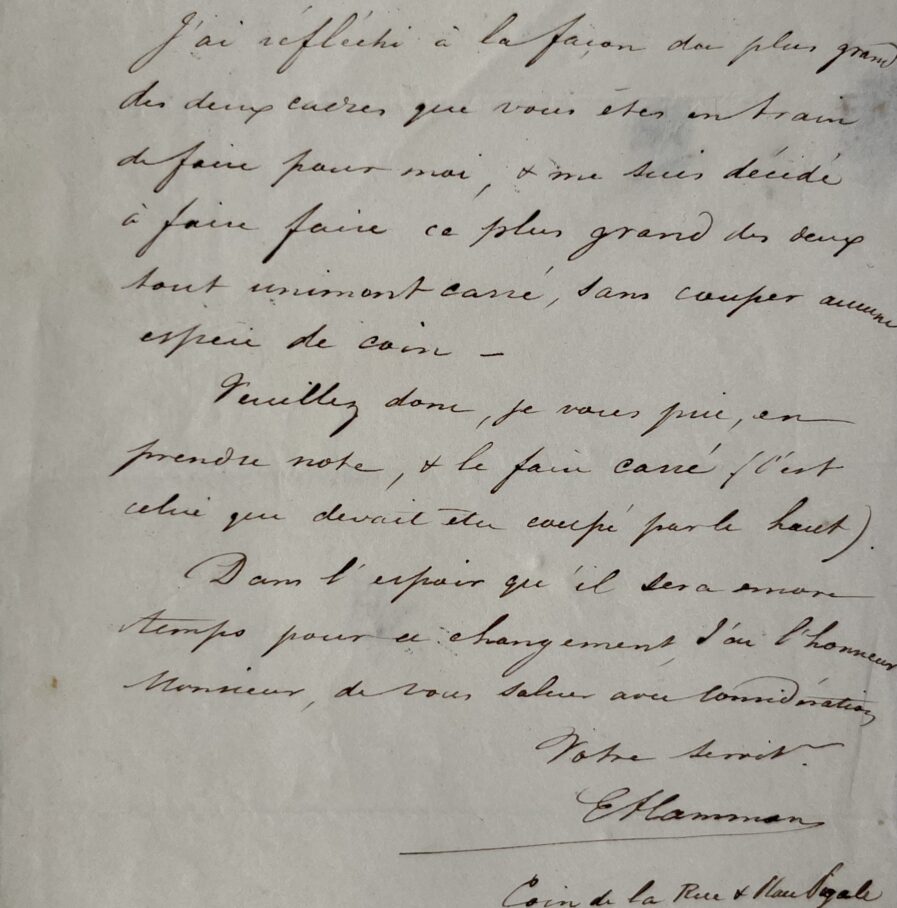 J'ai réfléchi à la façon du plus grand
des deux cadres que vous êtes en train
de faire pour moi, & me suis décidé
à faire faire ce plus grand des deux
tout uniment carré, sans couper aucune
espèce de coin –
Veuillez donc, je vous prie, en
prendre note, & le faire carré (c'est
celui qui devait être coupé par le haut).
Dans l'espoir qu'il sera encore
temps pour ce changement, J'ai l'honneur
Monsieur, de vous saluer avec Considération
Votre servitr.
EHamman
Coin de la Rue & Place Pigale